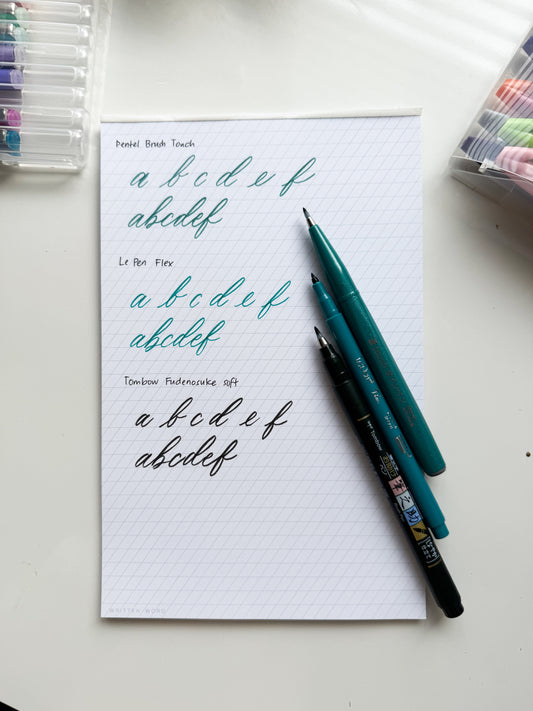 Pentel Brush Touch
a b c d e f
abcdef
Le Pen Flex
a b c d e f
abcdef
Tombow Fudenosuke soft
a b c d e f
abcdef
WRITTEN WORD